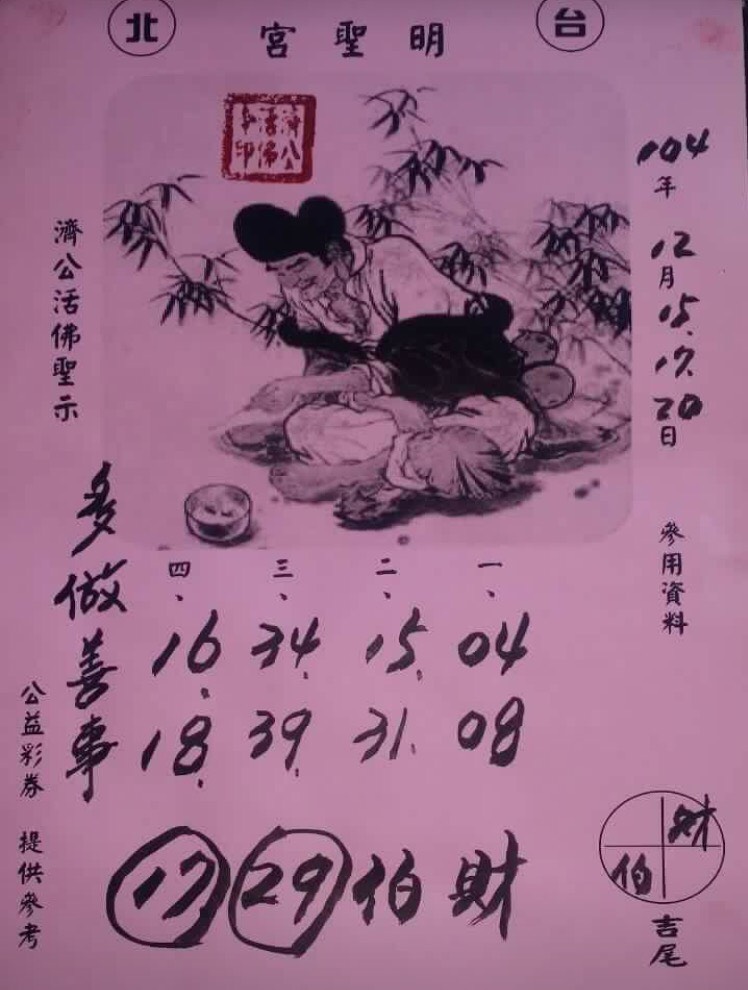 台 明聖宮 北
濟公
活佛
印
104年12月15.17.20日
參用資料
濟公活佛聖示
一、04 08
二、15. 31.
三、34. 39.
四、16. 18.
多做善事
財伯 29 17
財伯
吉尾
公益彩券 提供參考